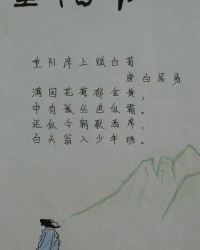 重阳节
重阳席上赋白菊
唐白居易
满园花菊郁金黄，
中有孤丛色似霜。
还似今朝歌酒席，
白头翁入少年场。